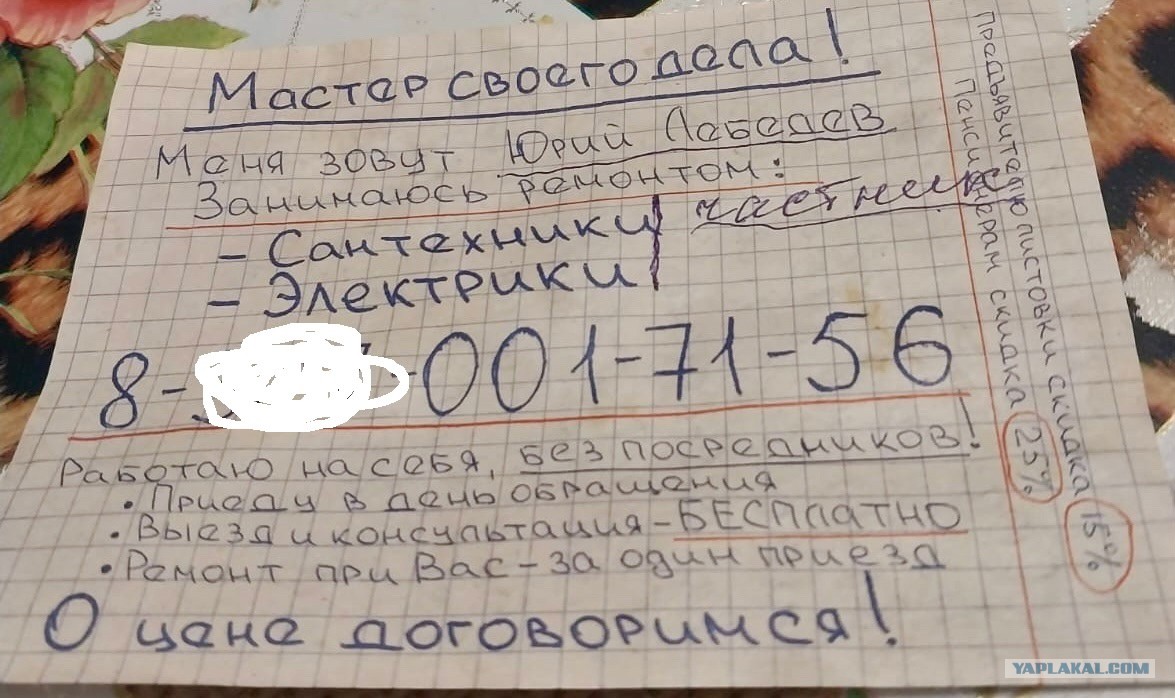 Мастер своего дела!
Меня зовут Юрий Лебедев
Занимаюсь ремонтом:
- Сантехники
- Электрики
частник
8- -001-71-56
Работаю на себя, без посредников!
• Приеду в день обращения
• Выезд и консультация - БЕСПЛАТНО
• Ремонт при Вас - за один приезд
О цене договоримся!
Предъявителю листовки скидка 15%
Пенсионерам скидка 25%
YAPLAKAL.COM